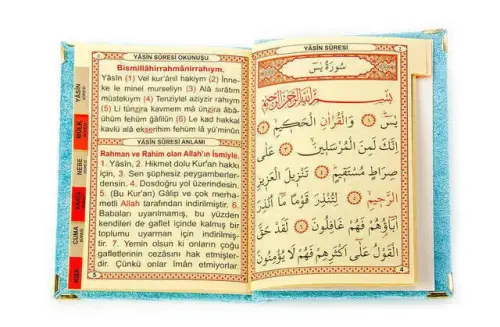 YÂSİN SÛRESİ OKUNUŞU
Bismillâhirrahmânirrahıym.
Yâsîn (1) Vel kur'ânil hakiym (2) İnne-
ke le minel murseliyn (3) Alâ sırâtim
müstekıym (4) Tenziylel aziyzir rahıym
(5) Li tünzira kavmem mâ ünzira âbâ-
ühüm fehüm gâfilûn (6) Le kad hakkal
kavlü alâ ekserihim fehüm lâ yü'minûn
YÂSİN SÛRESİ ANLAMI
Rahman ve Rahim olan Allah'ın İsmiyle.
1. Yâsin, 2. Hikmet dolu Kur'an hakkı
için, 3. Sen şüphesiz peygamberler-
densin. 4. Dosdoğru yol üzerindesin.
5. (Bu Kur'an) Galip ve çok merha-
metli Allah tarafından indirilmiştir. 6.
Babaları uyarılmamış, bu yüzden
kendileri de gaflet içinde kalmış bir
toplumu uyarman için indirilmiş-
tir. 7. Yemin olsun ki onların çoğu
gafletlerinin cezasını hak etmişler-
dir. Çünkü onlar îman etmiyorlar.
5
YÂSİN
MÜLK
NEBE
CUMA
YÂSİN SÛRESİ
سُورَةُ يٰسٓ
بِسْمِ اللّٰهِ الرَّحْمٰنِ الرَّحِيمِ
يٰسٓ ﴿١﴾ وَالْقُرْاٰنِ الْحَكِيمِ ﴿٢﴾
اِنَّكَ لَمِنَ الْمُرْسَلِينَ ﴿٣﴾ عَلٰى
صِرَاطٍ مُسْتَقِيمٍ ﴿٤﴾ تَنْزِيلَ الْعَزِيزِ
الرَّحِيمِ ﴿٥﴾ لِتُنْذِرَ قَوْمًا مَا اُنْذِرَ
اٰبَاؤُهُمْ فَهُمْ غَافِلُونَ ﴿٦﴾ لَقَدْ حَقَّ
الْقَوْلُ عَلٰى اَكْثَرِهِمْ فَهُمْ لَا يُؤْمِنُونَ
4